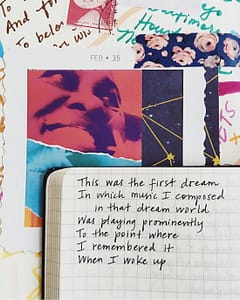 To
And fo
To belon
in w
Yo
How
time
FEB • 35
This was the first dream
In which music I composed
in that dream world
Was playing prominently
To the point where
I remembered it
When I woke up